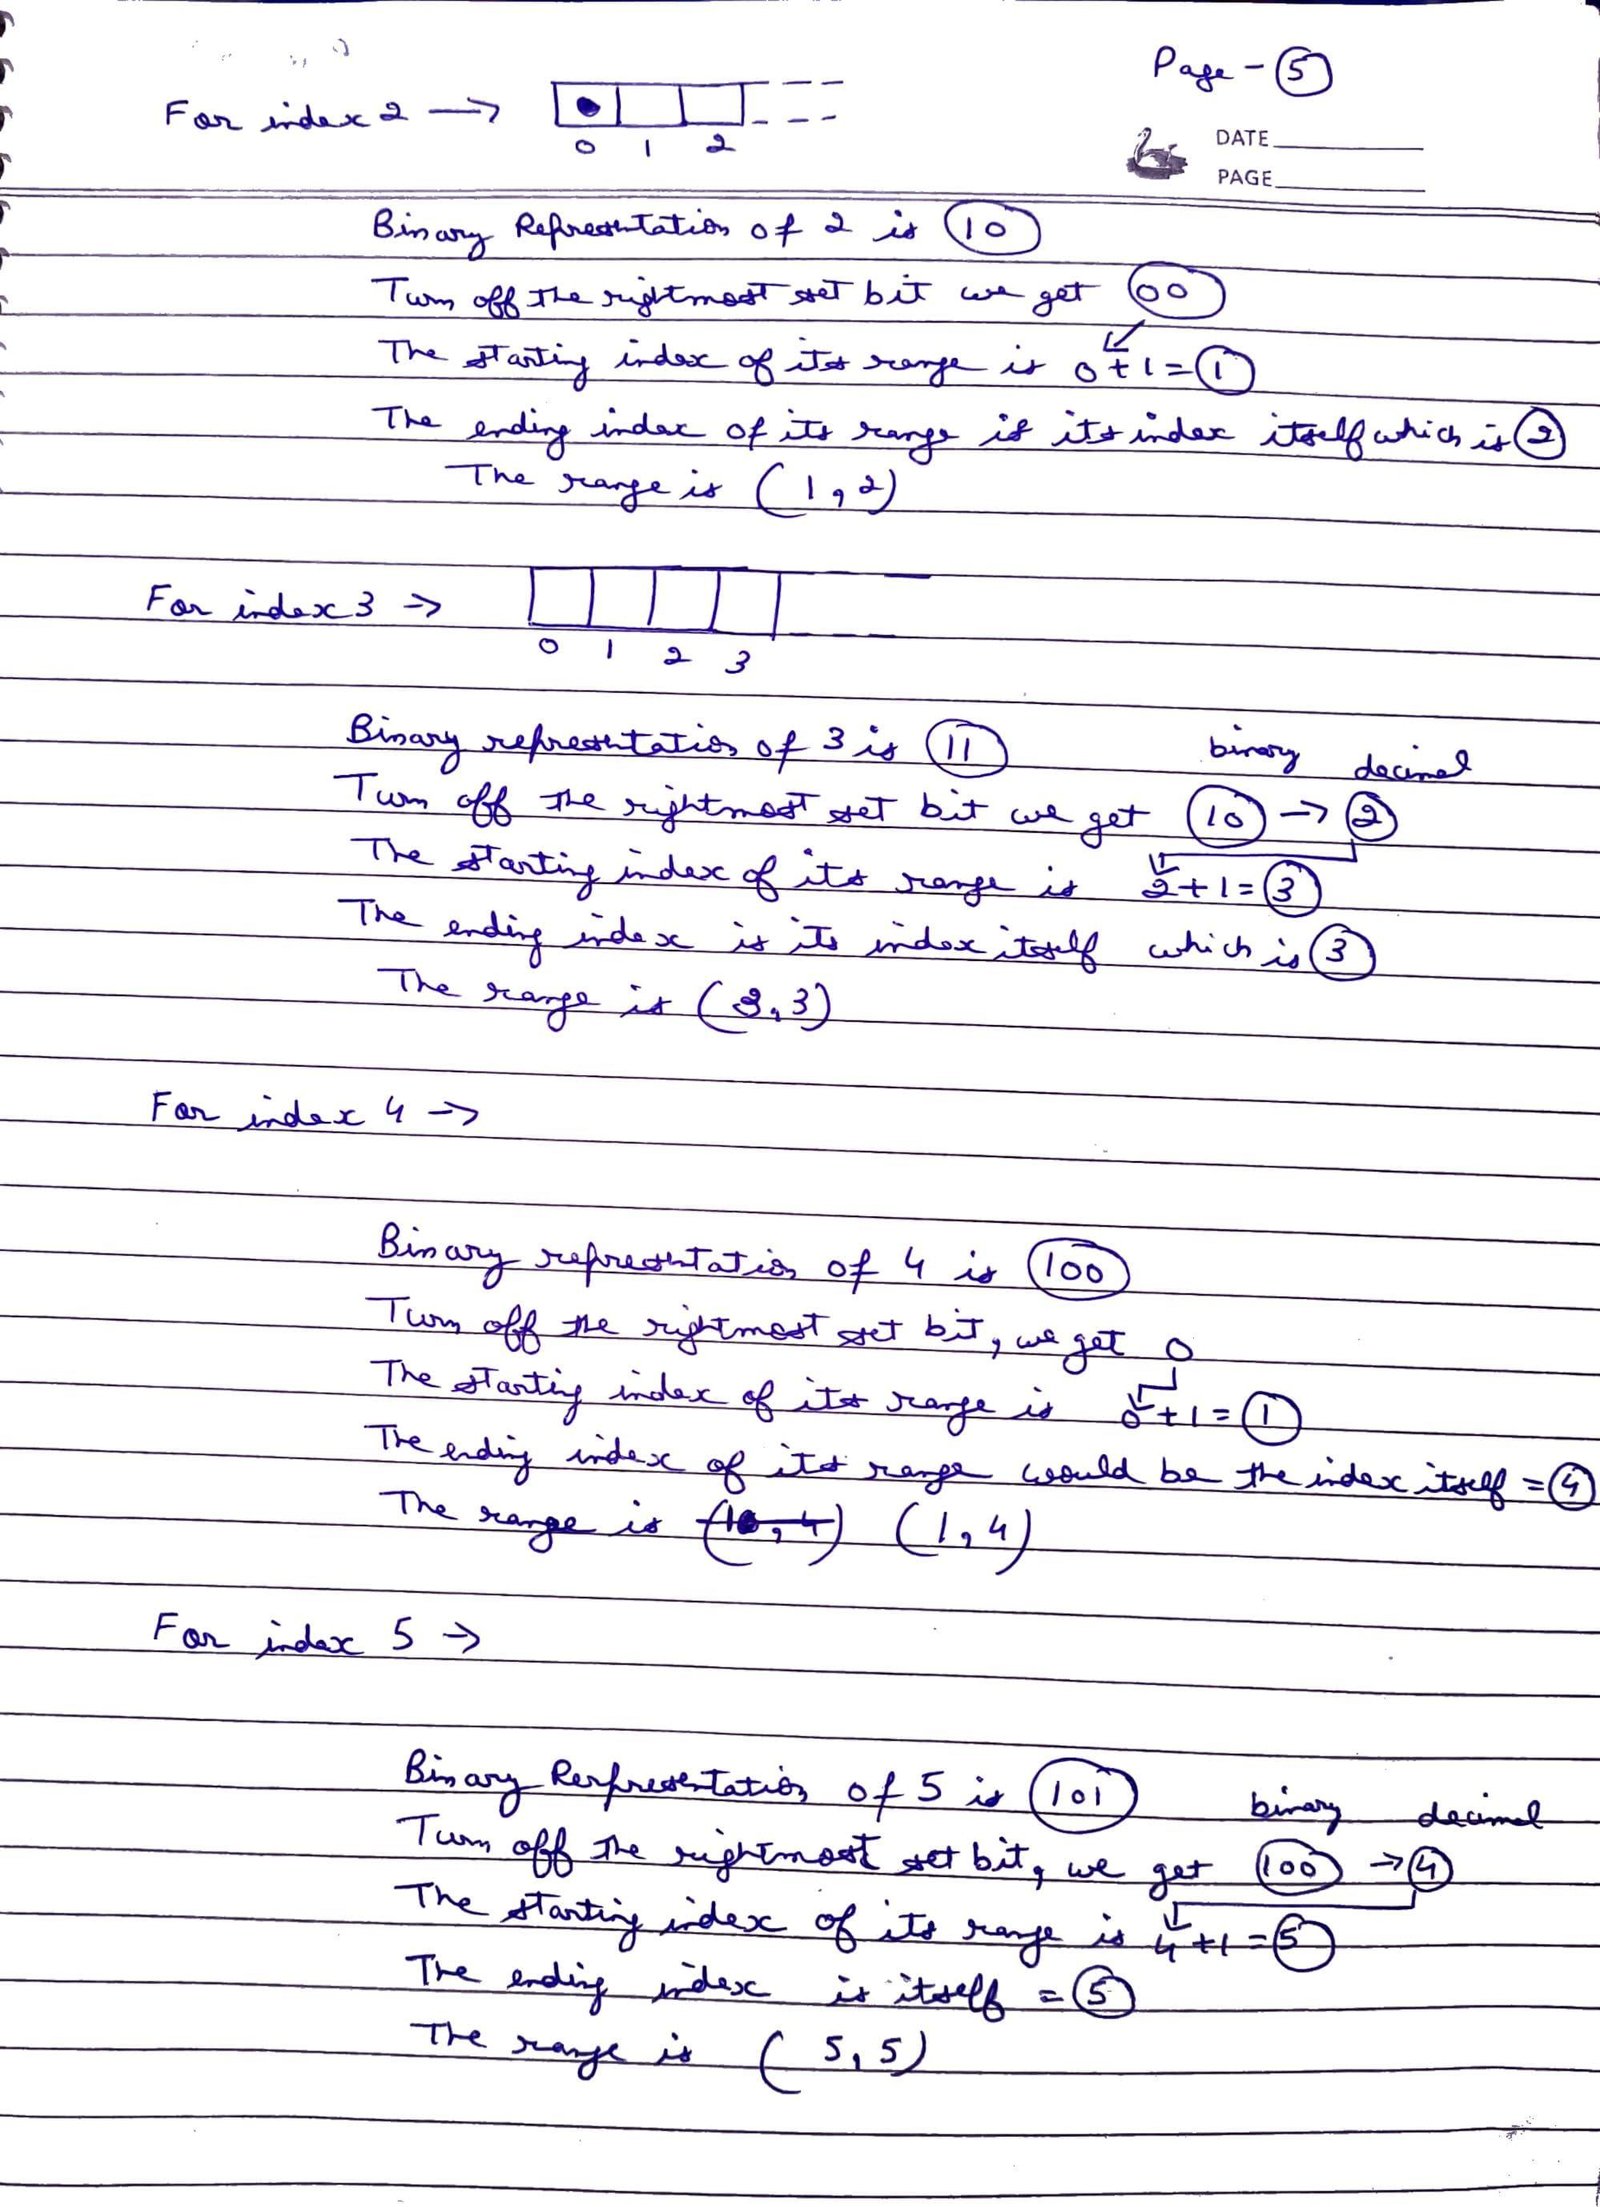 Page - 5
For index 2 →
0 1 2
DATE
PAGE
Binary Representation of 2 is 10
Turn off the rightmost set bit we get 00
The starting index of its range is 0+1=1
The ending index of its range is its index itself which is 2
The range is (1,2)
For index 3 →
0 1 2 3
Binary representation of 3 is 11
binary decimal
Turn off the rightmost set bit we get 10 → 2
The starting index of its range is 2+1=3
The ending index is its index itself which is 3
The range is (3,3)
For index 4 →
Binary representation of 4 is 100
Turn off the rightmost set bit, we get 0
The starting index of its range is 0+1=1
The ending index of its range would be the index itself = 4
The range is (1,4)
For index 5 →
Binary Rerpresentation of 5 is 101
binary decimal
Turn off the rightmost set bit, we get 100 → 4
The starting index of its range is 4+1=5
The ending index is itself = 5
The range is (5,5)